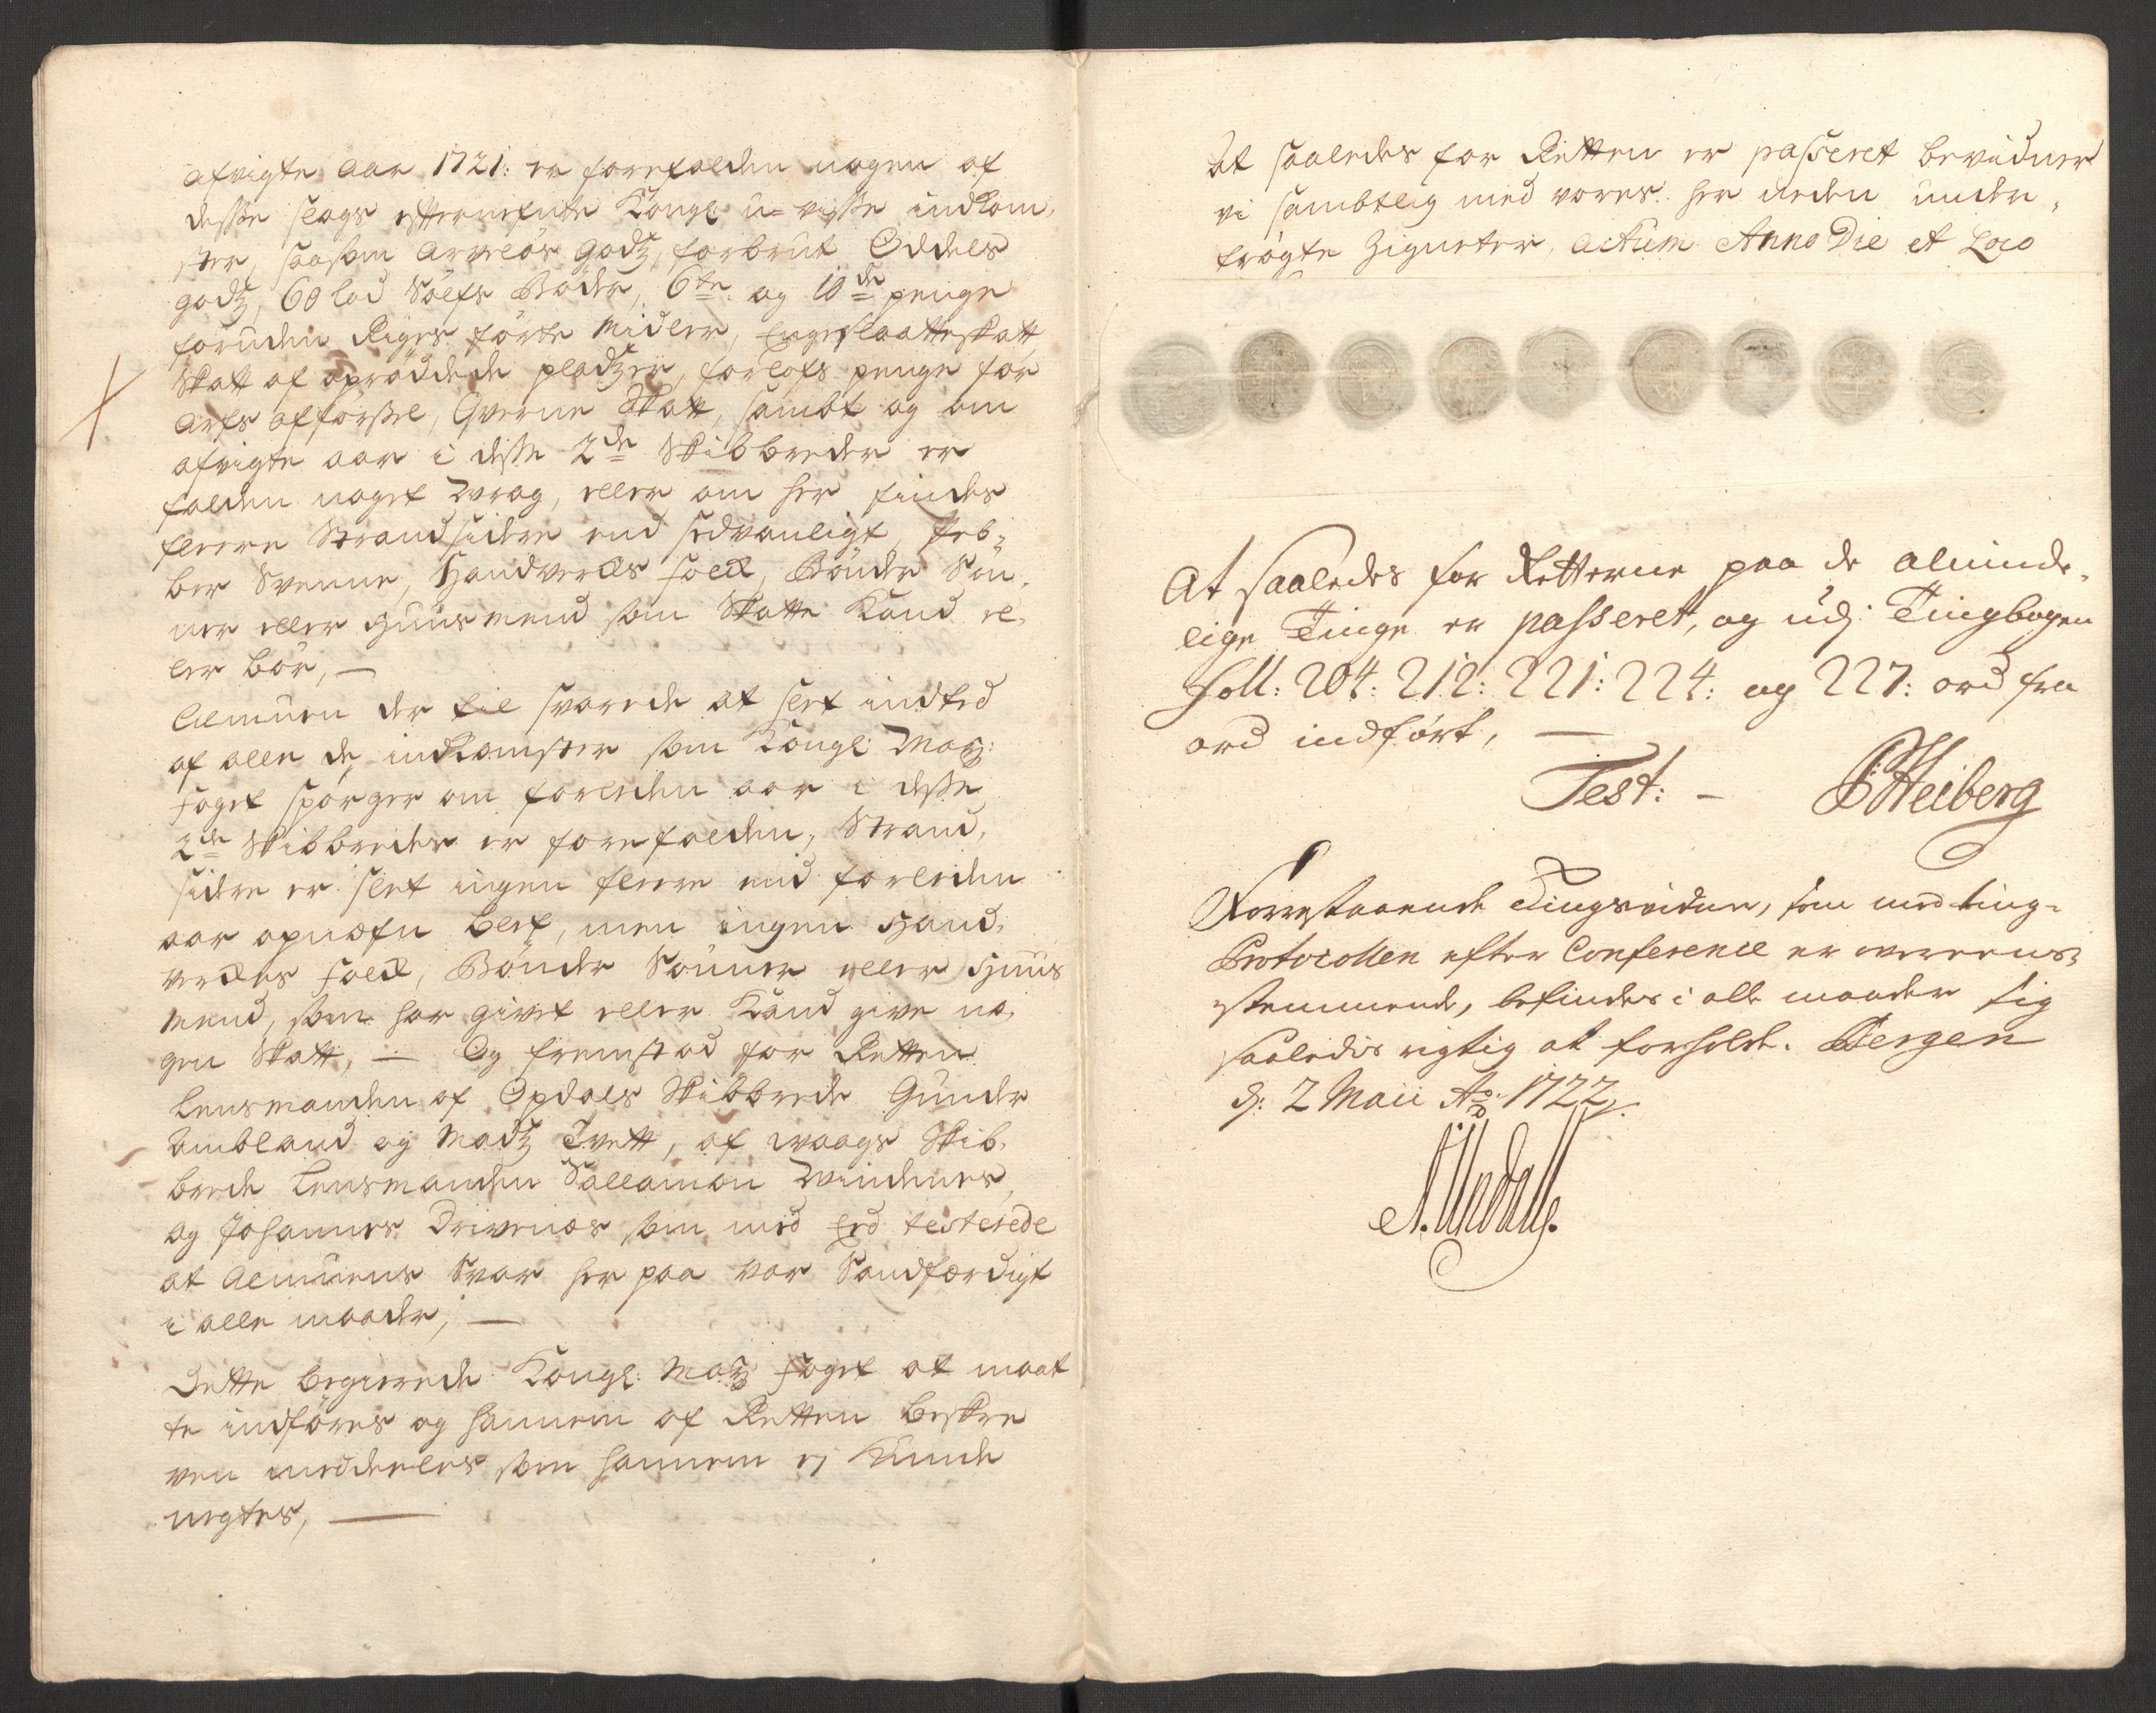 afvigte Aar 1721: er forefalden nogen af
desse slags effternefnte Kongl: u-visse indkom,
ster, saasom Arveløs godtz, forbrut Oddels
godtz, 60 lod Sølfs Bøder, 6te og 10de penge
foruden Riges førte Midler, Engeslaatteskatt,
Skatt af oprøddede pladtzer, forlofs penge for
Arfs afførsel, Qverne Skatt, sambt og om
afvigte aar i desse 2de Skibbreder er
falden noget Wrag, eller om her findes
fleere Strandsidere end sedvanligt, Peb-
ber Svenne, Handverks folck, Bønder Søn,
ner eller Huusmend som Skatte Kand el,
ler bør, —
Almuen der til svarede at slet indted
af alle de indkomster som Kongl: May:
foget spørger om forleden aar i desse
2de Skibbreder er forefalden, Strand,
sidere er slet ingen fleere end forleden
aar opnæfn blef, men ingen Hand,
verkes folck, Bønder Sønner eller Huus
Mend, som har givet eller Kand give no,
gen Skatt, — Og fremstod for Retten
Lensmanden af Opdals Skibbrede Gunder
Ambland og Madtz Tvett, af Waags Skib,
brede Lensmanden Sallamon Windenes,
og Johannes Drivenæs som med Eed testerede
at Almuens Svar her paa var Sandfærdigt
i alle maader, —
Dette begierede Kongl: May: foget at maat
te indføres og hannem af Retten beskre
ven meddeeles som hannem ej Kunde
negtes, —
At saaledes for Retten er passeret bevidner
vi sambtlig med vores her neden under,
trøgte Zigneter, Actum Anno Die et Loco
At saaledes for Retterne paa de alminde,
lige Tinge er passeret, og udj Tingbogen
foll: 204: 212: 221: 224: og 227: ord fra
ord indført, —
Test: - Heiberg
Forrestaaende Tingsvidne, som med ting-
Protocollen efter Conference er overeens-
stemmende, befindes i alle maader sig
saaledis rigtig at forholde. Bergen
d: 2 Maii Ao: 1722.